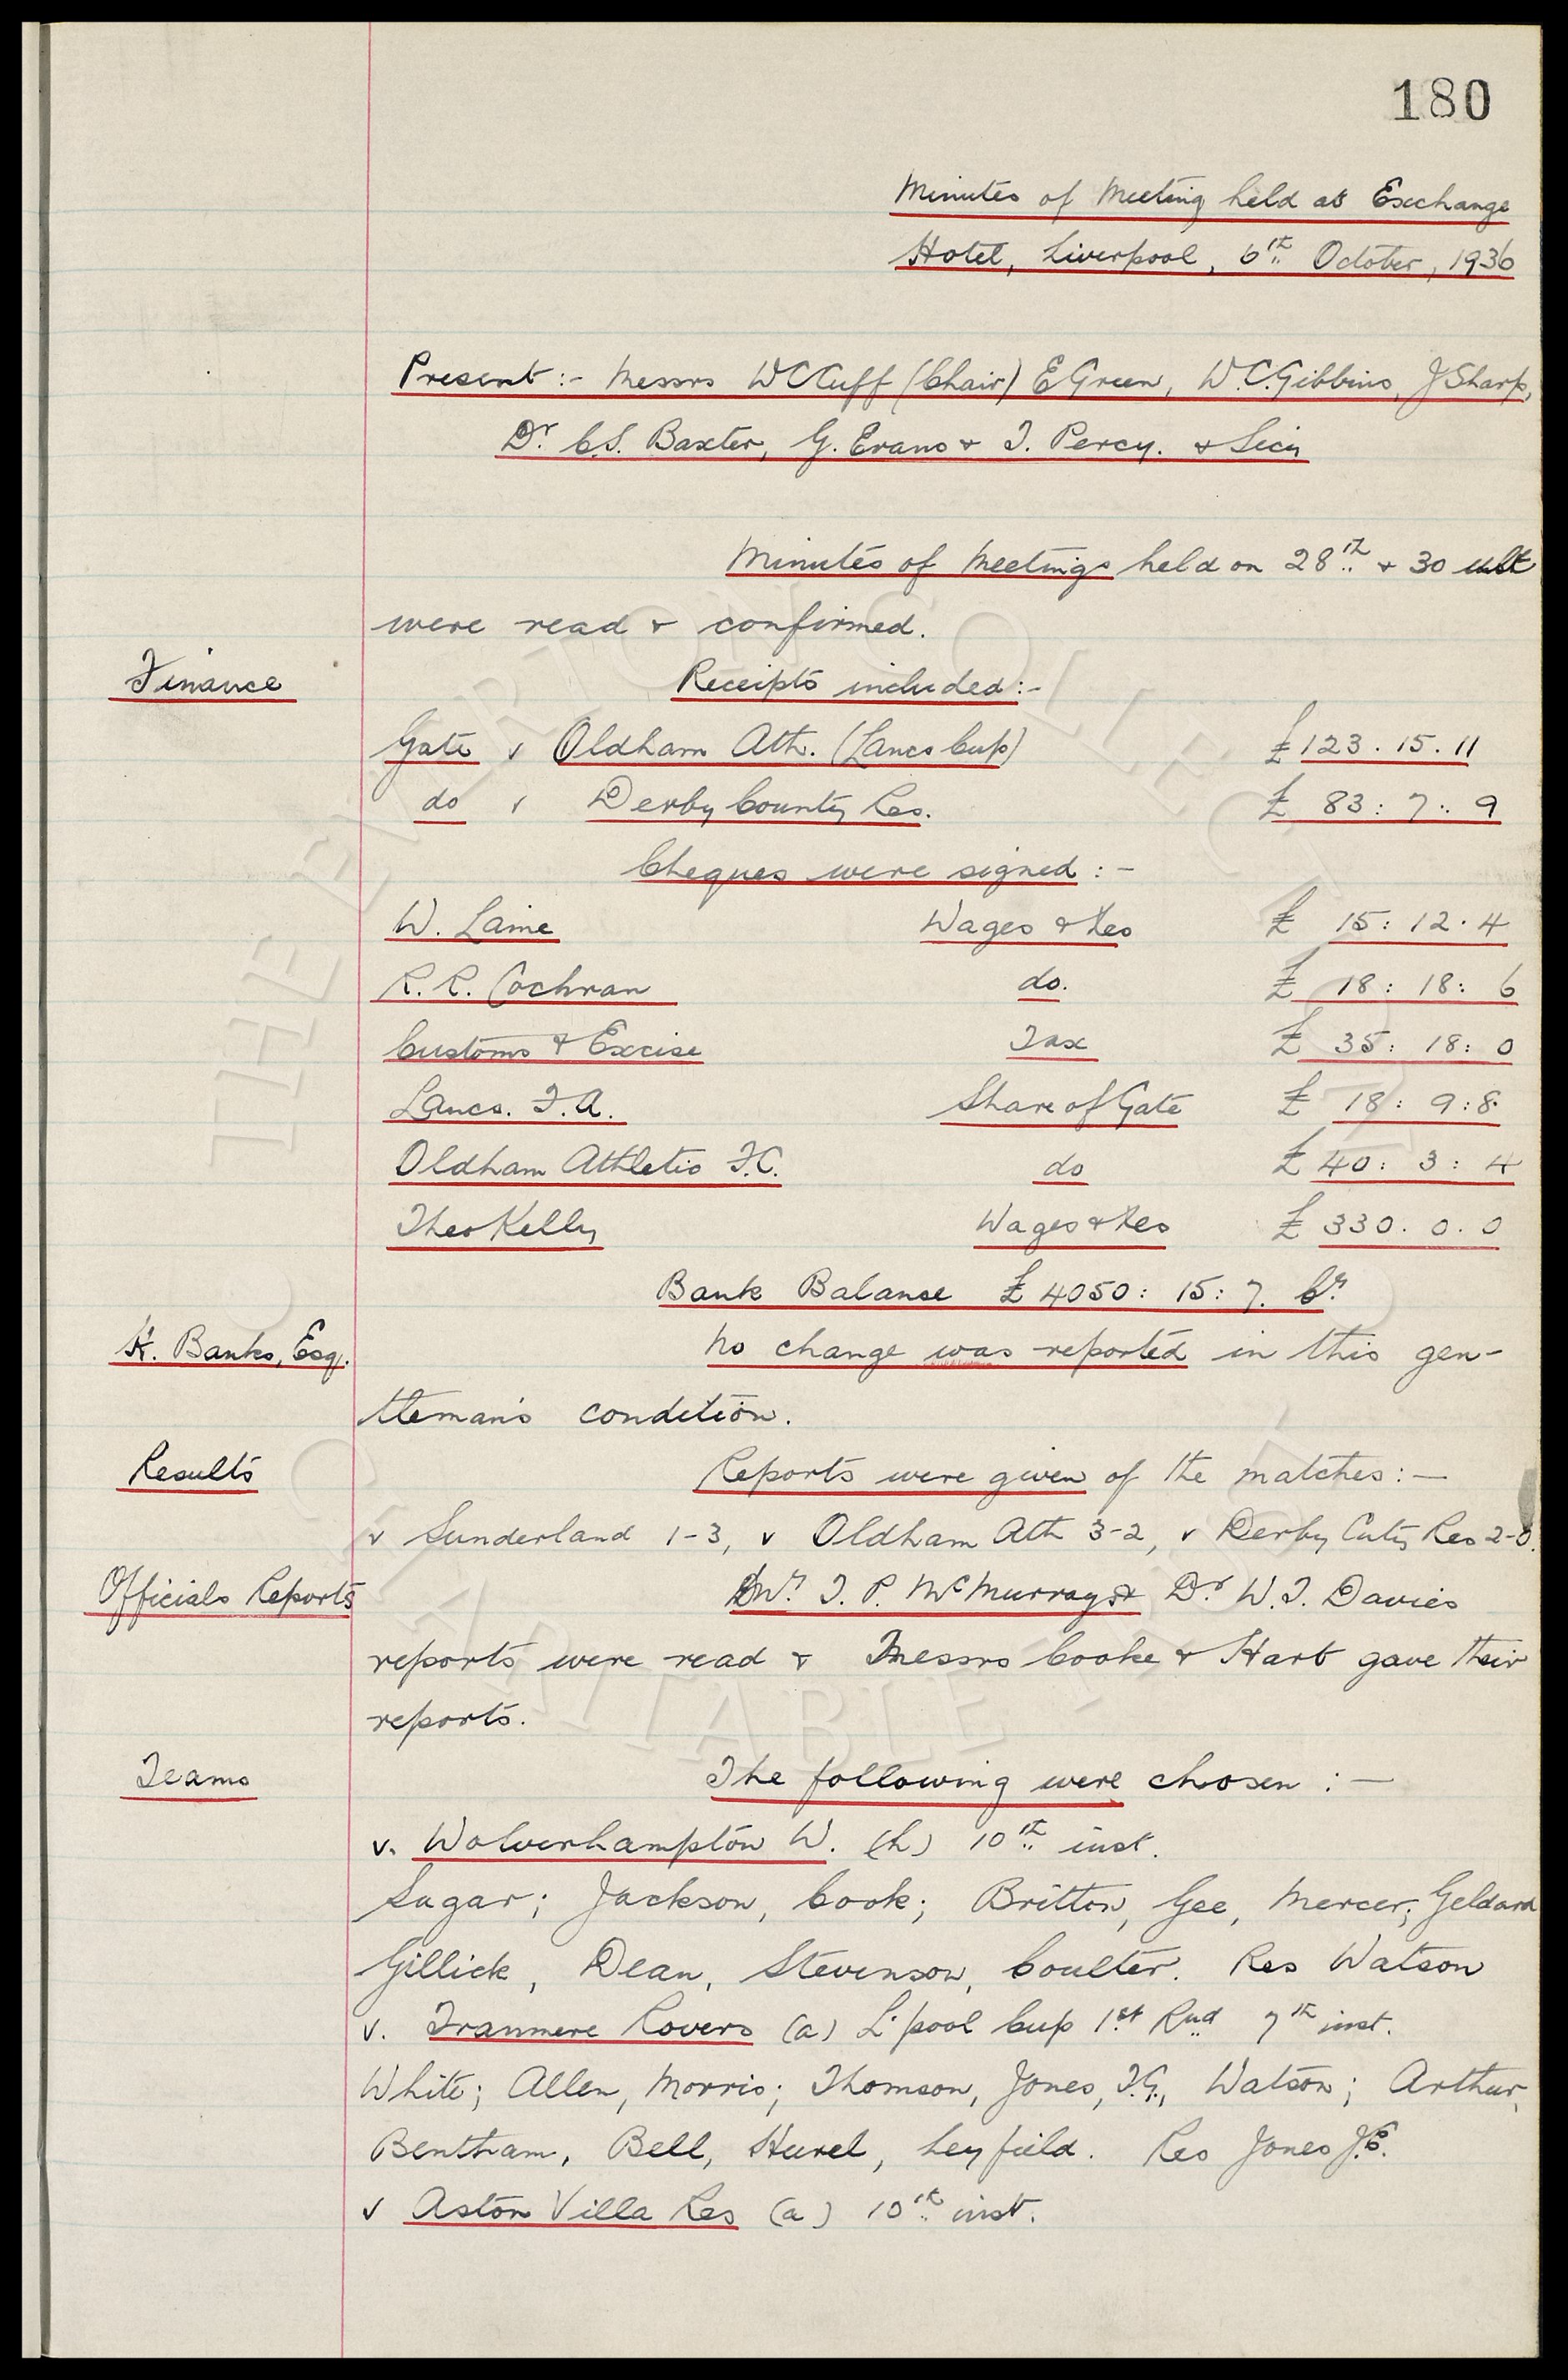 180
Minutes of Meeting held at Exchange
Hotel, Liverpool, 6th October, 1936
Present :- Messrs W C Cuff (Chair) E Green, W.C. Gibbins, J Sharp,
Dr. C.S. Baxter, G. Evans & T. Percy. & Secy
Minutes of Meetings held on 28th & 30 ult
were read & confirmed.
Finance
Receipts included :-
Gate v Oldham Ath. (Lancs Cup) £123.15.11
do v Derby County Res. £ 83: 7: 9
Cheques were signed :-
W. Laine Wages &tes £ 15: 12. 4
R. R. Cochran do. £ 18: 18: 6
Customs & Excise Tax £ 35: 18: 0
Lancs. F.A. Share of Gate £ 18: 9: 8.
Oldham Athletic F.C. do £ 40: 3: 4
Theo Kelly Wages &tes £ 330. 0. 0
Bank Balance £ 4050: 15: 7. Cr.
Banks, Esq. No change was reported in this gen-
tleman's condition.
Results
Reports were given of the matches :-
v Sunderland 1-3, v Oldham Ath 3-2, v Derby Cnty Res 2-0.
Officials Reports
Mr. T. P. McMurray & Dr W.T. Davies
reports were read & Messrs Cooke & Hart gave their
reports.
Teams
The following were chosen :-
v. Wolverhampton W. (h) 10th inst.
Sagar; Jackson, Cook; Britton, Gee, Mercer; Geldard
Gillick, Dean, Stevenson, Coulter. Res Watson
v. Tranmere Rovers (a) L'pool Cup 1st Rnd 7th inst.
White; Allen, Morris; Thomson, Jones, T.G., Watson; Arthur,
Bentham, Bell, Hurel, Leyfield. Res Jones J.E.
v Aston Villa Res (a) 10th inst.
THE EVERTON COLLECTION
CHARITABLE TRUST